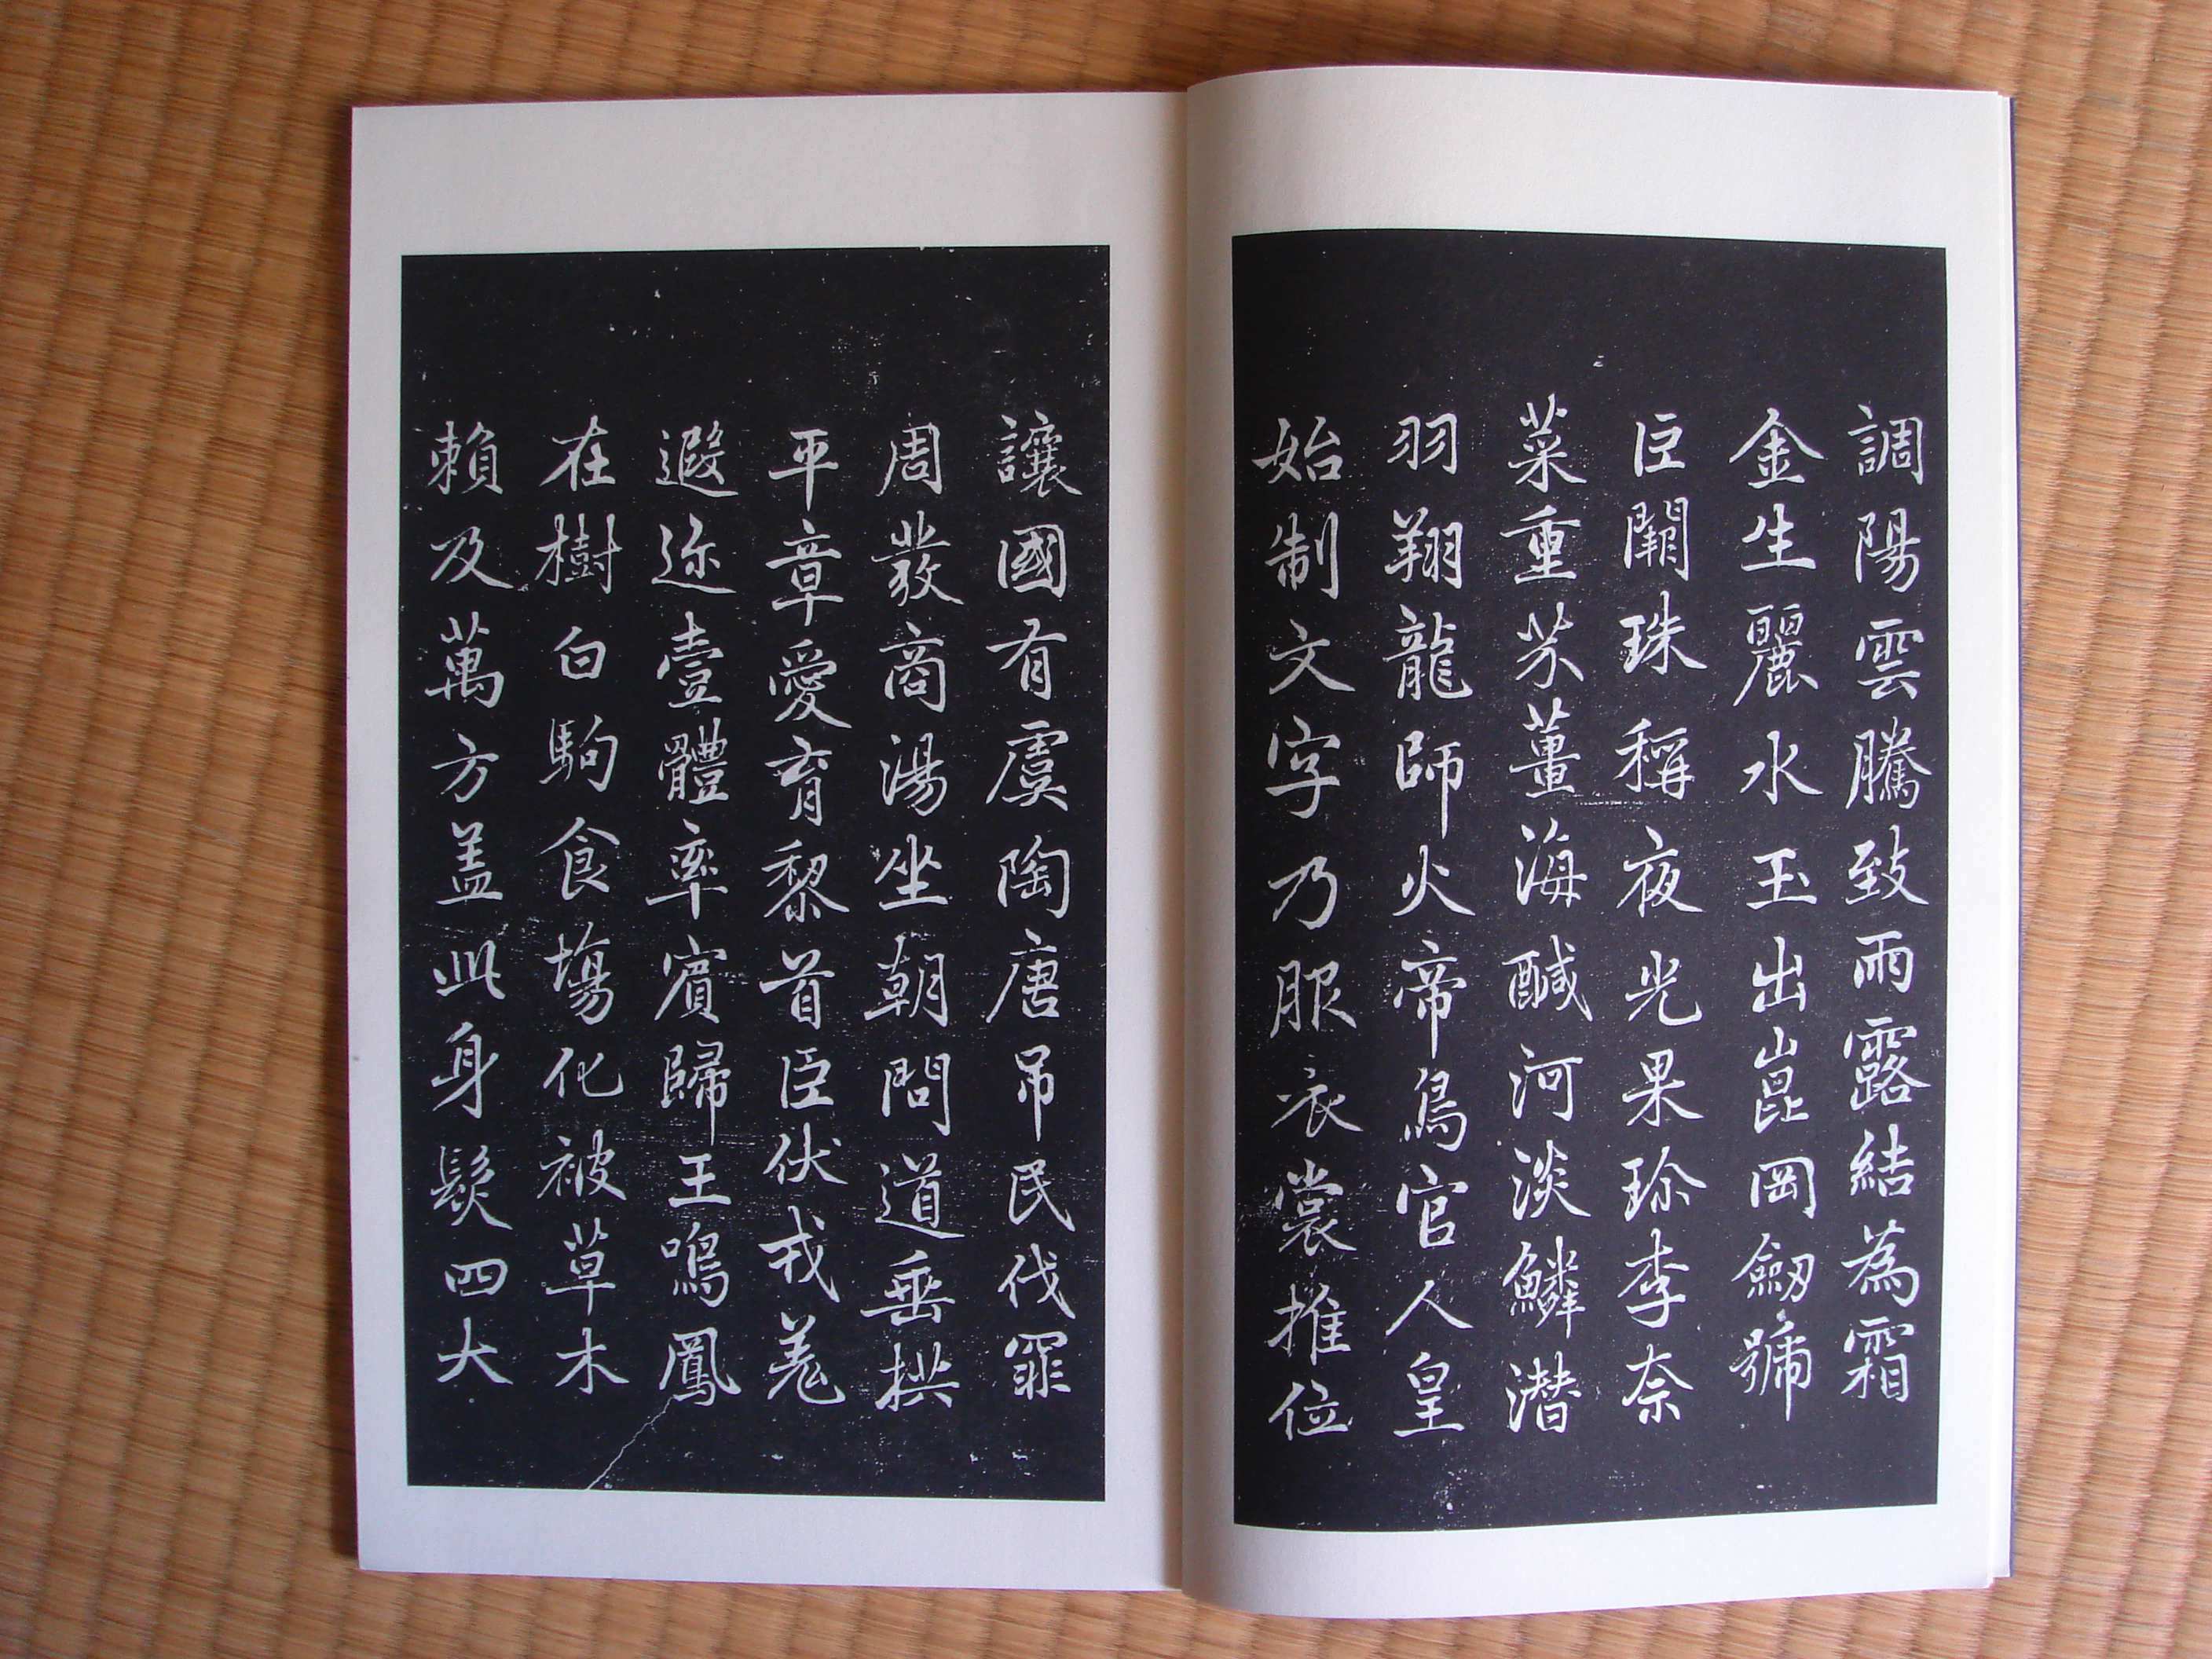 調陽雲騰致雨露結為霜
金生麗水玉出崑岡劒號
巨闕珠稱夜光果珎李奈
菜重芥薑海醎河淡鱗潛
羽翔龍師火帝鳥官人皇
始制文字乃服衣裳推位
讓國有虞陶唐吊民伐罪
周發商湯坐朝問道垂拱
平章愛育黎首臣伏戎羌
遐迩壹體率賓歸王鳴鳳
在樹白駒食場化被草木
賴及萬方盖此身髮四大